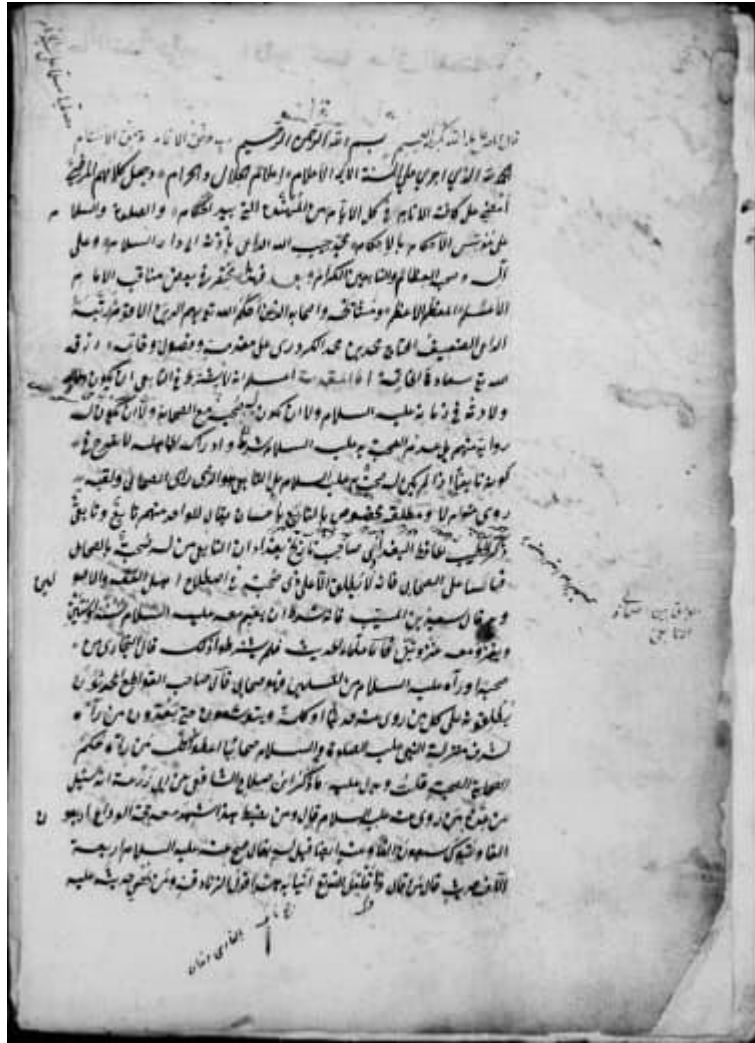 بسم الله الرحمن الرحيم وبه وفق الاتمام
الحمد لله الذي اجرى على السنة الائمة الاعلام اعلام الحلال والحرام وجعل كلامهم المرضي
امضى على كافة الانام في كل الايام من المهند التي بيد الحكام والصلوة والسلام
على مؤسس الاحكام بالاحكام محمد حبيب الله الداعي باذنه الى دار السلام وعلى
آله وصحبه العظام والتابعين الكرام وبعد فهذا مختصر في بعض مناقب الامام
الاعظم المعظم ومشائخه واصحابه الذين احكم الله بهم الدين الاقوم رتبه
الداعي الضعيف المحتاج محمد بن محمد الكردري على مقدمة وفصول وخاتمة رزقه
الله سعادة الخاتمة اما المقدمة اعلم انه لا يشترط في التابعي ان يكون
ولادته في زمانه عليه السلام ولا ان يكون له صحبة مع الصحابة ولا ان يكون له
رواية منهم عدم الصحبة به عليه السلام شرط وادراك الجاهلية لا يقدح في
كونه تابعيا اذا لم يكن له صحبة به عليه السلام التابعي هو الذي رأى الصحابي ولقيه
روى عنه ام لا ومطلقه مخصوص بالتابع باحسان يقال للواحد منهم تابع وتابعي
ذكر الخطيب الحافظ البغدادي صاحب تاريخ بغداد ان التابعي من له صحبة بالصحابي
قياسا على الصحابي فانه لا يطلق الا على ذي صحبة في اصطلاح اهل الفقه والاصوليين
وبه قال سعيد بن المسيب فانه شرط ان يقيم معه عليه السلام سنة او سنتين
ويغزو معه غزوة قيل فاما علماء الحديث فلم يشترطوا ذلك قال البخاري من
صحبه او رآه عليه السلام من المسلمين فهو صحابي قال صاحب القواطع المحدثون
يطلقونه على كل من روى عنه حديثا او كلمة ويتوسعون حتى يعدون من رآه
لشرف منزلة النبي عليه الصلوة والسلام صحابيا اعطوا كل من رآه حكم
الصحابة قلت ويدل عليه ما ذكر ابن صلاح الشافعي عن ابي زرعة انه سئل
عن عدة من روى عنه عليه السلام قال ومن يضبط هذا شهد معه حجة الوداع اربعون
الفا وتبوك سبعون الفا ايضا قيل له يقال صح عنه عليه السلام اربعة
آلاف حديث قال من قال ذا انيابه هذا قول الزنادقة ومن يحصي حديثه عليه
الفرق بين الصحابي
والتابعي